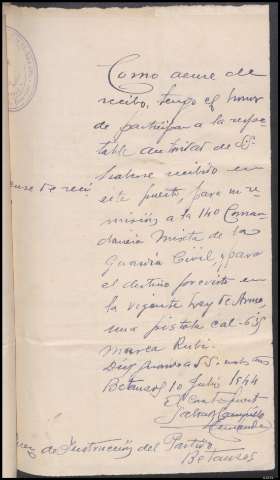 Como acuse de
recibo, tengo el honor
de participar a la respe
table autoridad de SS.
haberse recibido en
acuse de reci
este puesto, para su re
misión a la 140 Coman
dancia Mixta de la
Guardia Civil, y para
el destino previsto en
la vigente Ley de Armas,
una pistola cal-6,35
marca Rubi.
Dios guarde a SS. muchos
Betanzos 10 Julio 1944
El Cmte. Puesto
Hernandez
Juez de Instrucción del Partido
Betanzos